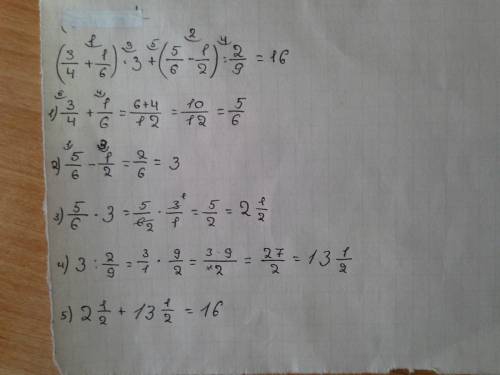 1 3 5 2 4
(3/4 + 1/6) · 3 + (5/6 - 1/2) : 2/9 = 16
1) 3/4 + 1/6 = 6+4/12 = 10/12 = 5/6
2) 5/6 - 1/2 = 2/6 = 3
3) 5/6 · 3 = 5/6 2 · 3/1 1 = 5/2 = 2 1/2
4) 3 : 2/9 = 3/1 · 9/2 = 3·9/2 = 27/2 = 13 1/2
5) 2 1/2 + 13 1/2 = 16